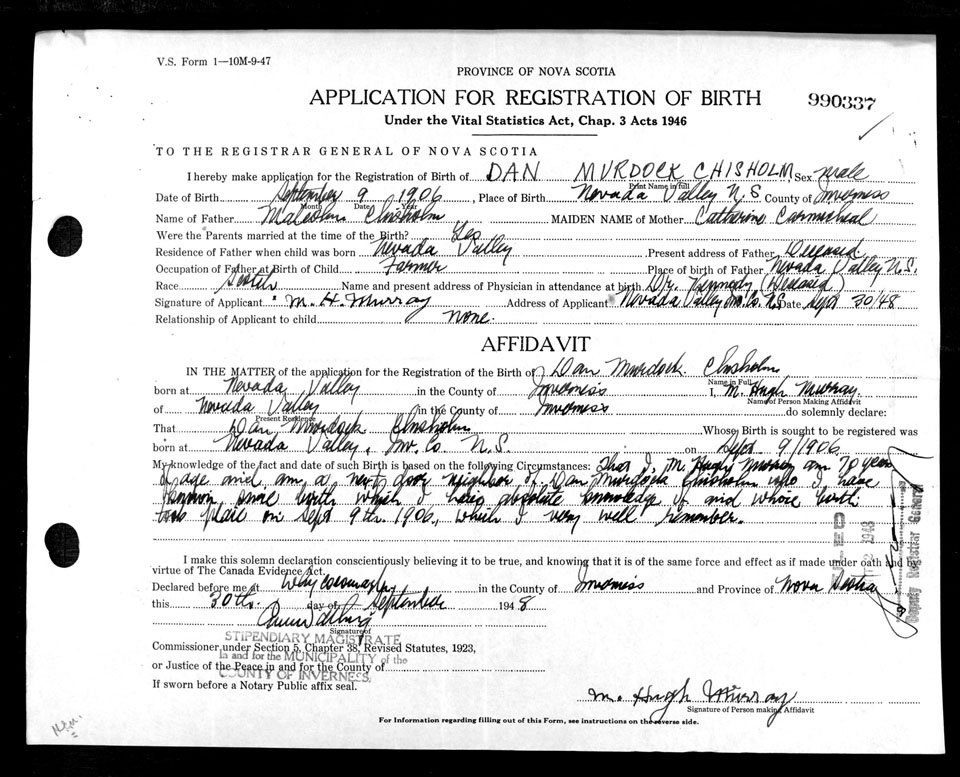 V.S. Form 1—10M-9-47
PROVINCE OF NOVA SCOTIA
APPLICATION FOR REGISTRATION OF BIRTH
990337
Under the Vital Statistics Act, Chap. 3 Acts 1946
TO THE REGISTRAR GENERAL OF NOVA SCOTIA
I hereby make application for the Registration of Birth of DAN MURDOCK CHISHOLM, Sex male
Print Name in full
Date of Birth September 9 1906, Place of Birth Nevada Valley N.S County of Inverness
Month Date Year
Name of Father Malcolm Chisholm MAIDEN NAME of Mother Catharine Carmicheal
Were the Parents married at the time of the Birth? Yes
Residence of Father when child was born Nevada Valley Present address of Father Deceased
Occupation of Father at Birth of Child Farmer Place of birth of Father Nevada Valley N.S.
Race Scotch Name and present address of Physician in attendance at birth Dr. Kennedy
Signature of Applicant M. H. Murray Address of Applicant Nevada Valley Inv. Co. N.S Date Sept 30/48
Relationship of Applicant to child none.
AFFIDAVIT
IN THE MATTER of the application for the Registration of the Birth of Dan Murdock Chisholm
Name in Full
born at Nevada Valley in the County of Inverness I, M. Hugh Murray
Name of Person Making Affidavit
of Nevada Valley in the County of Inverness do solemnly declare:
Present Residence
That Dan Murdock Chisholm Whose Birth is sought to be registered was
born at Nevada Valley, Inv. Co. N.S. on Sept 9/1906
My knowledge of the fact and date of such Birth is based on the following Circumstances: That I, M. Hugh Murray am 70 years
of age and am a next door neighbor of Dan Murdock Chisholm who I have
known since birth which I have absolute knowledge of and whose birth
took place on Sept 9th. 1906, which I very well remember.
I make this solemn declaration conscientiously believing it to be true, and knowing that it is of the same force and effect as if made under oath and by
virtue of The Canada Evidence Act.
Declared before me at Whycocomagh in the County of Inverness and Province of Nova Scotia
this 30th. day of September 1948
Signature of
STIPENDIARY MAGISTRATE
Commissioner under Section 5, Chapter 38, Revised Statutes, 1923,
In and for the MUNICIPALITY of the
or Justice of the Peace in and for the County of
COUNTY OF INVERNESS
If sworn before a Notary Public affix seal.
M. Hugh Murray
Signature of Person making Affidavit
For Information regarding filling out of this Form, see instructions on the reverse side.
Deputy Registrar General